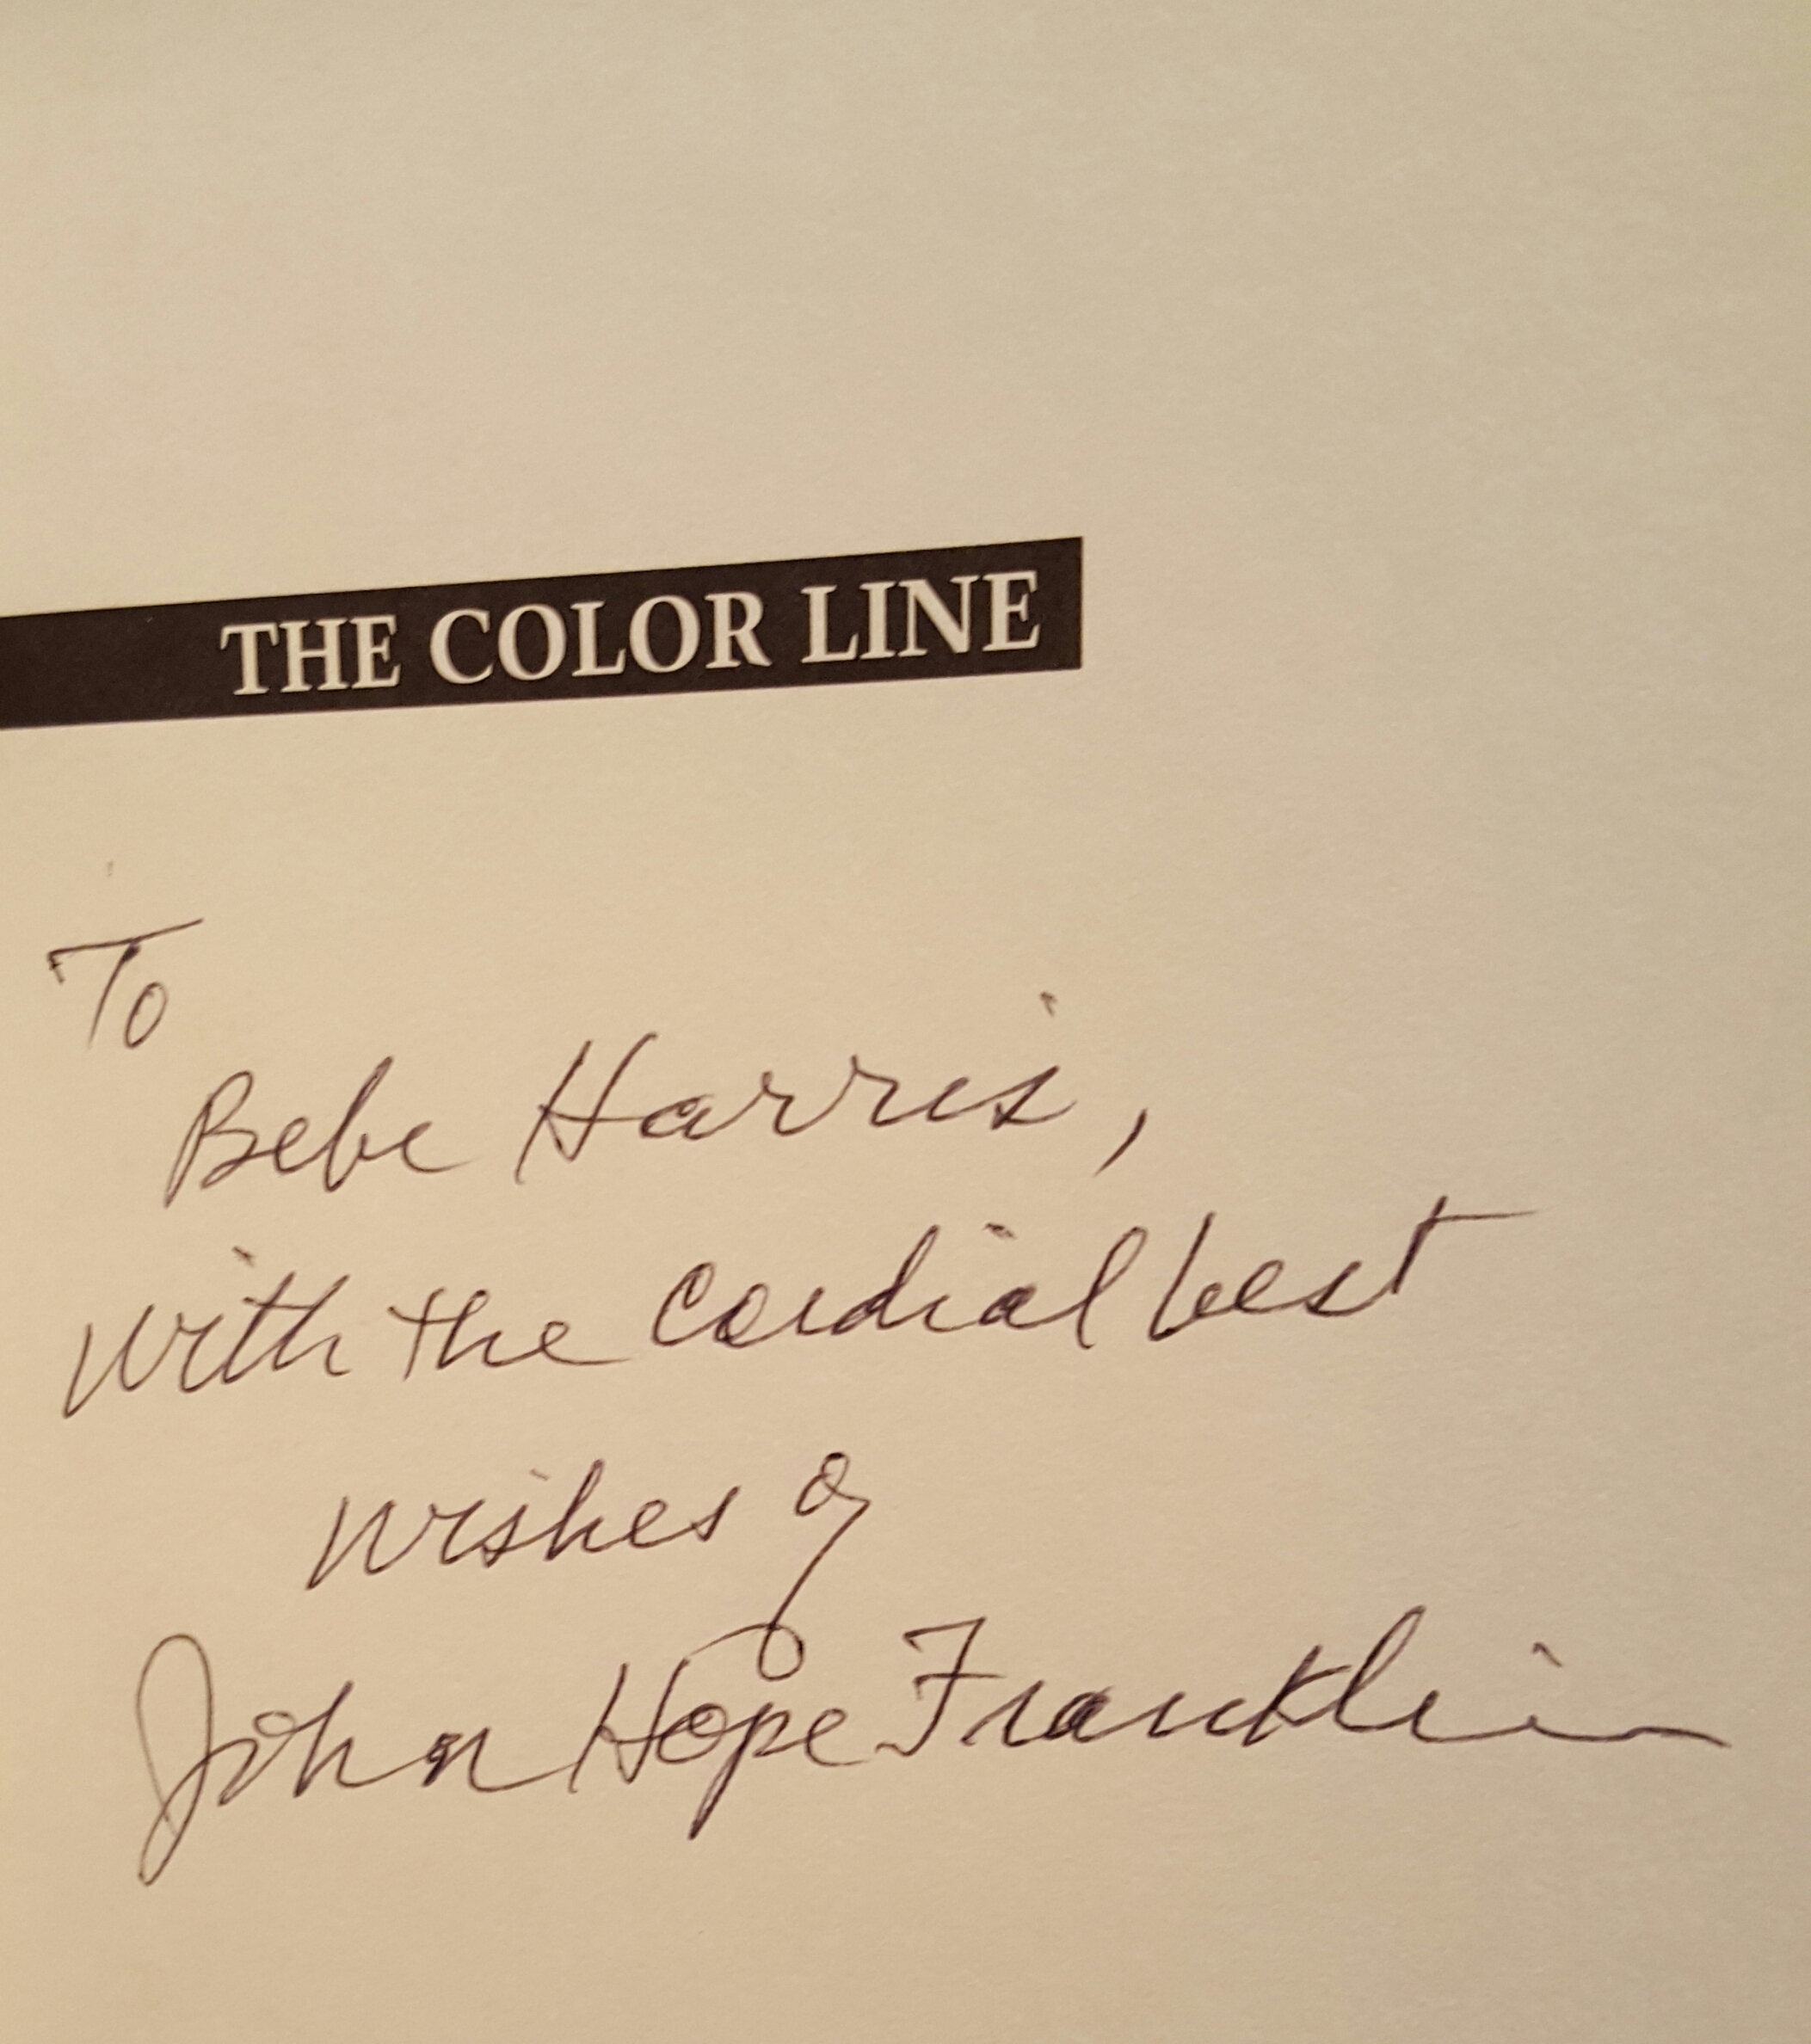 THE COLOR LINE
To
Bebe Harris,
with the cordial best
wishes of
John Hope Franklin